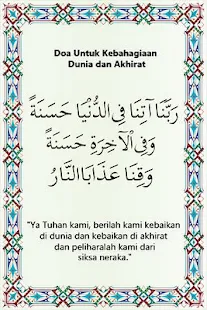 Doa Untuk Kebahagiaan
Dunia dan Akhirat
رَبَّنَا آتِنَا فِي الدُّنْيَا حَسَنَةً
وَفِي الْآخِرَةِ حَسَنَةً
وَقِنَا عَذَابَ النَّارِ
"Ya Tuhan kami, berilah kami kebaikan
di dunia dan kebaikan di akhirat
dan peliharalah kami dari
siksa neraka."